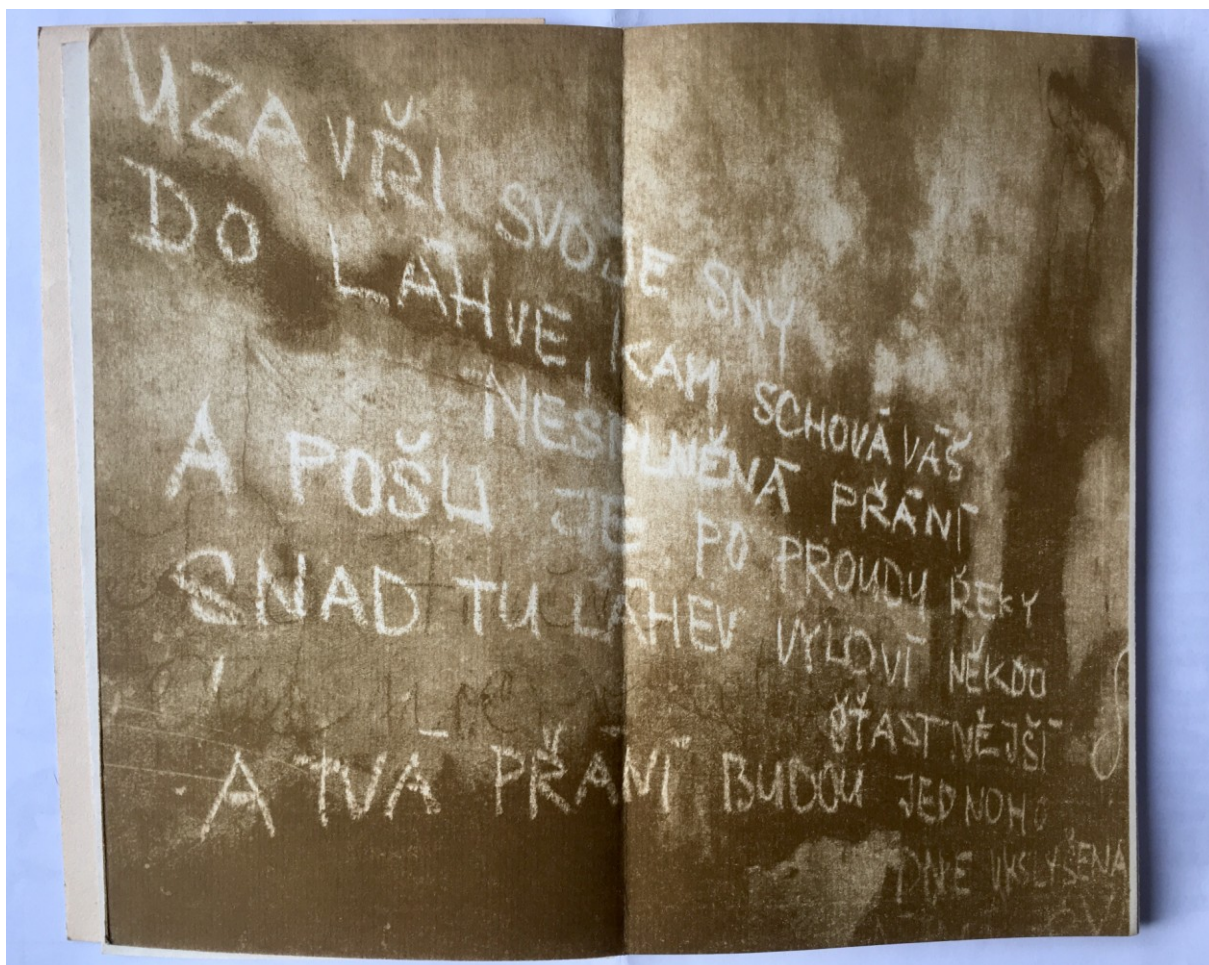 UZAVŘI SVOJE SNY
DO LÁHVE, KAM SCHOVÁVÁŠ
NESPLNĚNÁ PŘÁNÍ
A POŠLI JE PO PROUDU ŘEKY
SNAD TU LÁHEV VYLOVÍ NĚKDO
ŠŤASTNĚJŠÍ
A TVÁ PŘÁNÍ BUDOU JEDNOHO
DNE VYSLYŠENA